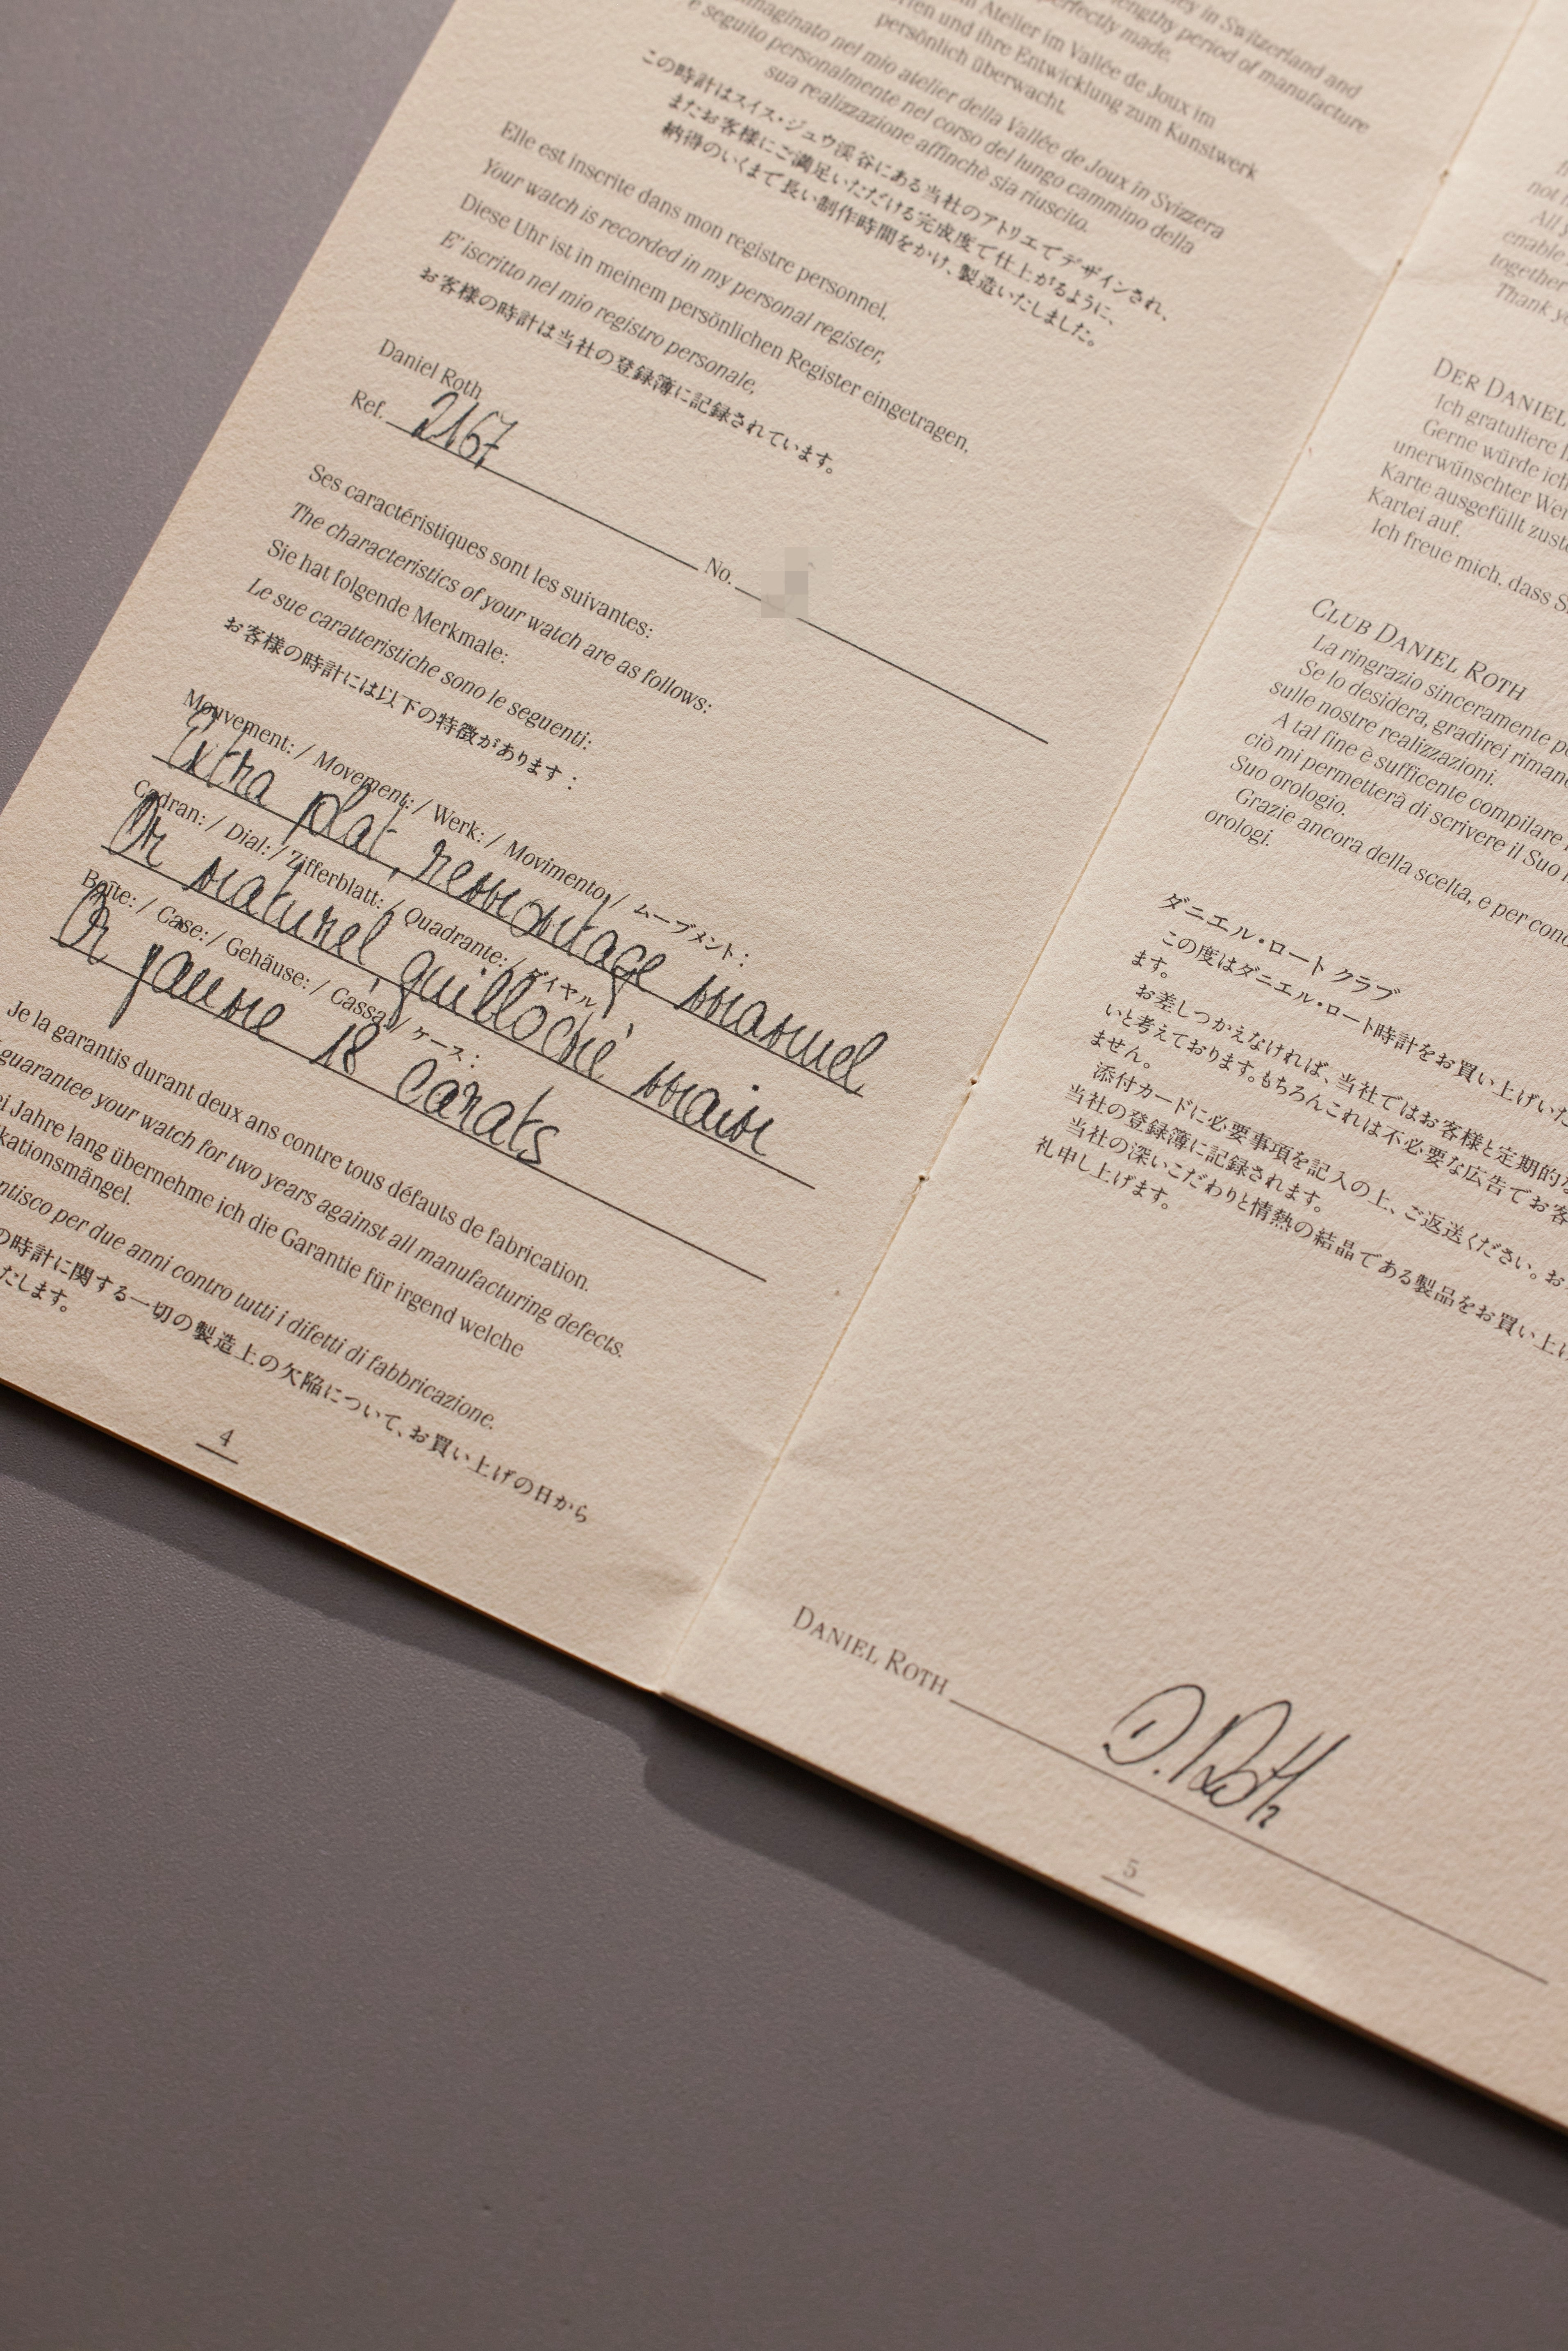 in Switzerland and
lengthy period of manufacture
perfectly made.
Atelier im Vallée de Joux im
und ihre Entwicklung zum Kunstwerk
persönlich überwacht.
nel mio atelier della Vallée de Joux in Svizzera
e seguito personalmente nel corso del lungo cammino della
sua realizzazione affinchè sia riuscito.
この時計はスイス・ジュウ渓谷にある当社のアトリエでデザインされ、
またお客様にご満足いただける完成度で仕上がるように、
納得のいくまで長い制作時間をかけ、製造いたしました。
Elle est inscrite dans mon registre personnel.
Your watch is recorded in my personal register,
Diese Uhr ist in meinem persönlichen Register eingetragen,
E' iscritto nel mio registro personale,
お客様の時計は当社の登録簿に記録されています。
Daniel Roth
Ref. 2167 No.
Ses caractéristiques sont les suivantes:
The characteristics of your watch are as follows:
Sie hat folgende Merkmale:
Le sue caratteristiche sono le seguenti:
お客様の時計には以下の特徴があります：
Mouvement: / Movement: / Werk: / Movimento / ムーブメント：
Extra plat, remontage manuel
Cadran: / Dial: / Zifferblatt: / Quadrante: / ダイヤル
Or naturel guilloché main
Boîte: / Case: / Gehäuse: / Cassa / ケース：
Or jaune 18 carats
Je la garantis durant deux ans contre tous défauts de fabrication.
guarantee your watch for two years against all manufacturing defects.
Jahre lang übernehme ich die Garantie für irgend welche
kationsmängel.
per due anni contro tutti i difetti di fabbricazione.
の時計に関する一切の製造上の欠陥について、お買い上げの日から
たします。
4
not
All
enable
together
Thank
DER DANIEL
Ich gratuliere
Gerne würde ich
unerwünschter
Karte ausgefüllt
Kartei auf.
Ich freue mich, dass
CLUB DANIEL ROTH
La ringrazio sinceramente
Se lo desidera, gradirei
sulle nostre realizzazioni.
A tal fine è sufficente compilare
ciò mi permetterà di scrivere il Suo
Suo orologio.
Grazie ancora della scelta, e per
orologi.
ダニエル・ロート クラブ
この度はダニエル・ロート時計をお買い上げいた
ます。
お差しつかえなければ、当社ではお客様と定期的な
いと考えております。もちろんこれは不必要な広告でお客
ません。
添付カードに必要事項を記入の上、ご返送ください。お
当社の登録簿に記録されます。
当社の深いこだわりと情熱の結晶である製品をお買い上げ
礼申し上げます。
DANIEL ROTH D. Roth
5